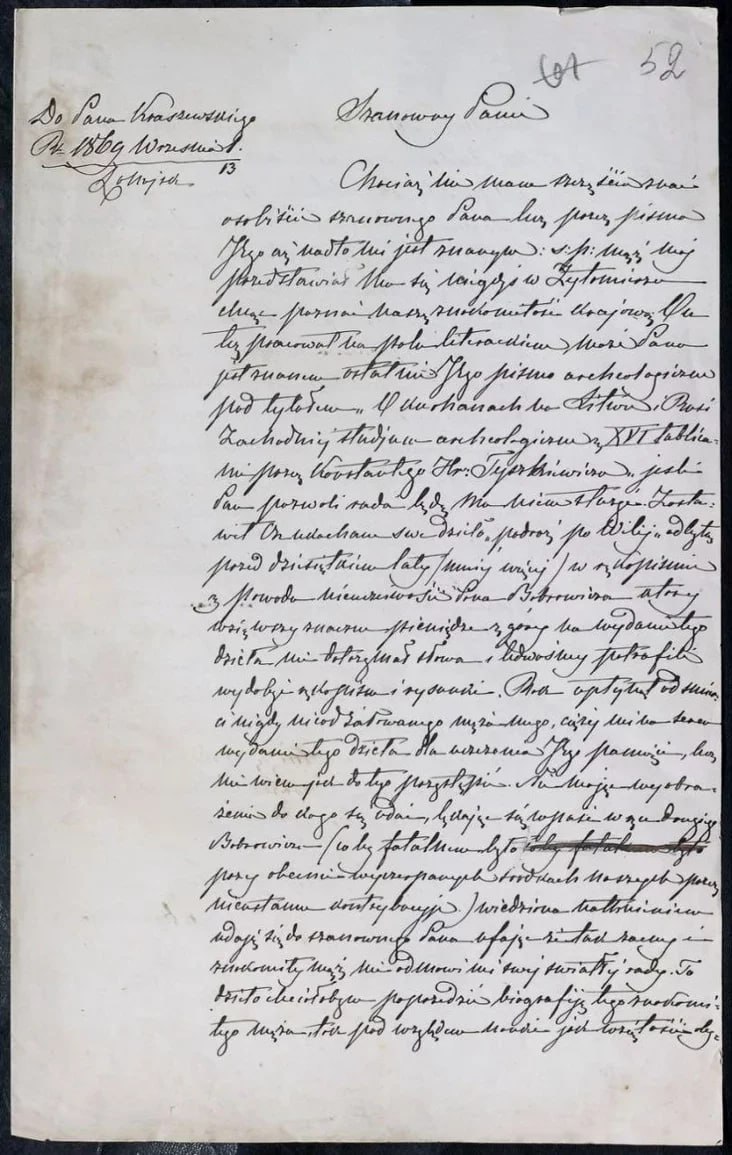 52
Do Pana Kraszewskiego
Rk 1869 Września 1.
13
Łohojsk
Szanowny Panie
Chociaż nie mam szczęścia znać
osobiście szanownego Pana lecz przez pisma
Jego aż nadto mi jest znanym: s: p: mąż mój
przedstawiał Mu się niegdyś w Żytomierzu
chcąc poznać naszą znakomitość krajową; On
też pracował na polu literackiem, może Panu
jest znanem ostatnie Jego pismo archeologiczne
pod tytułem „O Kurhanach na Litwie i Rusi
Zachodniej studjum archeologiczne z XVI tablica-
mi przez Konstantego Hr: Tyszkiewicza „ jeśli
Pan pozwoli rada będę Mu niem służyć. Zosta-
wił On ukochane swe dzieło „podróż po Wilij„ odbytą
przed dziesiątkiem laty (mniej więcej) w rękopismie
z powodu nieuczciwości Pana Bobrowicza który
wziąwszy znaczne pieniądze z góry na wydanie tego
dzieła nie dotrzymał słowa i ledwośmy potrafili
wydobyć rękopism i rysunki. Rok upłynął od śmier-
ci nigdy nieodżałowanego męża mego, cięży mi na sercu
wydanie tego dzieła dla uczczenia Jego pamięci, lecz
nie wiem jak do tego przystąpić. Nie mając wyobra-
żenia do kogo się udać, lękając się wpaść w ręce drugiego
Bobrowicza (coby fatalnem było
przy obecnie wyczerpanych środkach naszych przez
nieustanne kontrybucyje) wiedziona natchnieniem
udaję się do szanownego Pana ufając że tak zacny i
znakomity mąż nie odmówi mi swej światłej rady. To
dzieło chciałabym poprzedzić biografiją tego znakomi-
tego męża, tak pod względem nauki jak